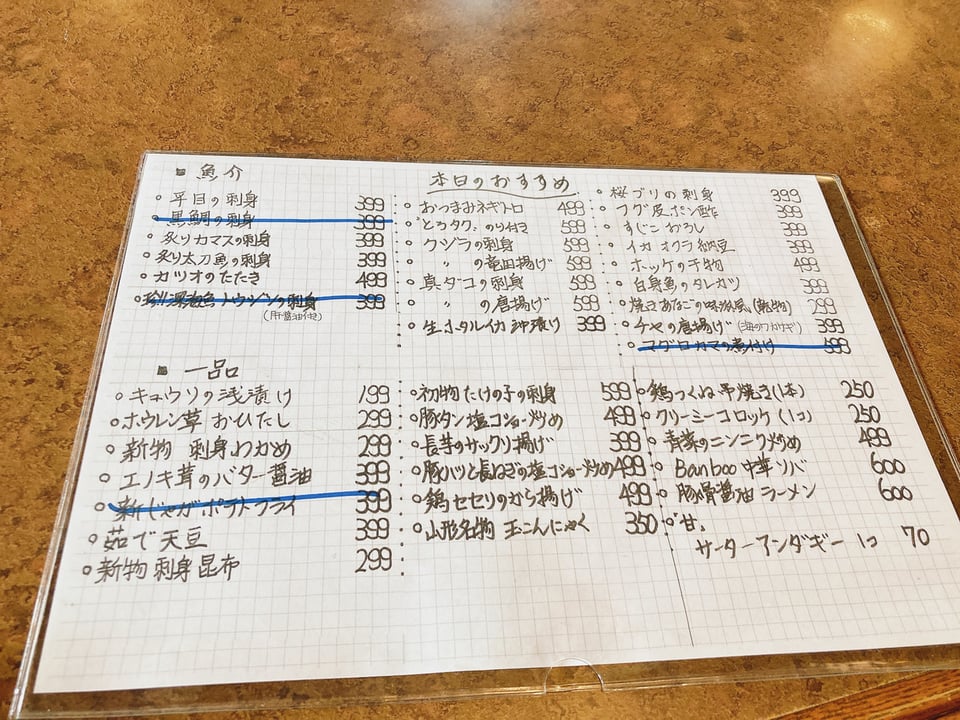 本日のおすすめ
■ 魚介
○ 平目の刺身 399
○ 黒鯛の刺身 399
○ 炙りカマスの刺身 399
○ 炙り太刀魚の刺身 399
○ カツオのたたき 499
○ 珍!!深海魚 トウジンの刺身 399
(肝醤油付き)
○ おつまみネギトロ 499
○ とろタク。のり付き 599
○ クジラの刺身 599
○ 〃 の竜田揚げ 599
○ 真ダコの刺身 599
○ 〃 の唐揚げ 599
○ 生ホタルイカ沖漬け 399
○ 桜ブリの刺身 399
○ フグ皮ポン酢 399
○ すじこおろし 399
○ イカオクラ納豆 399
○ ホッケの干物 499
○ 白身魚のタレカツ 399
○ 焼きあなごの 風(乾物) 299
○ チカの唐揚げ(海のワカサギ) 399
○ マグロカマの煮付け 699
■ 一品
○ キュウリの浅漬け 199
○ ホウレン草おひたし 299
○ 新物 刺身わかめ 299
○ エノキ茸のバター醤油 399
○ 新じゃがポテトフライ 399
○ 茹で天豆 399
○ 新物刺身昆布 299
○ 初物たけの子の刺身 599
○ 豚タン塩コショー炒め 499
○ 長芋のサックリ揚げ 399
○ 豚ハツと長ねぎの塩コショー炒め 499
○ 鶏セセリのから揚げ 499
○ 山形名物 玉こんにゃく 350
○ 鶏つくね串焼き(1本) 250
○ クリーミーコロッケ(1コ) 250
○ 青菜のニンニク炒め 499
○ Banboo中華ソバ 600
○ 豚骨醤油ラーメン 600
○ 甘。
サーターアンダギー 1コ 70